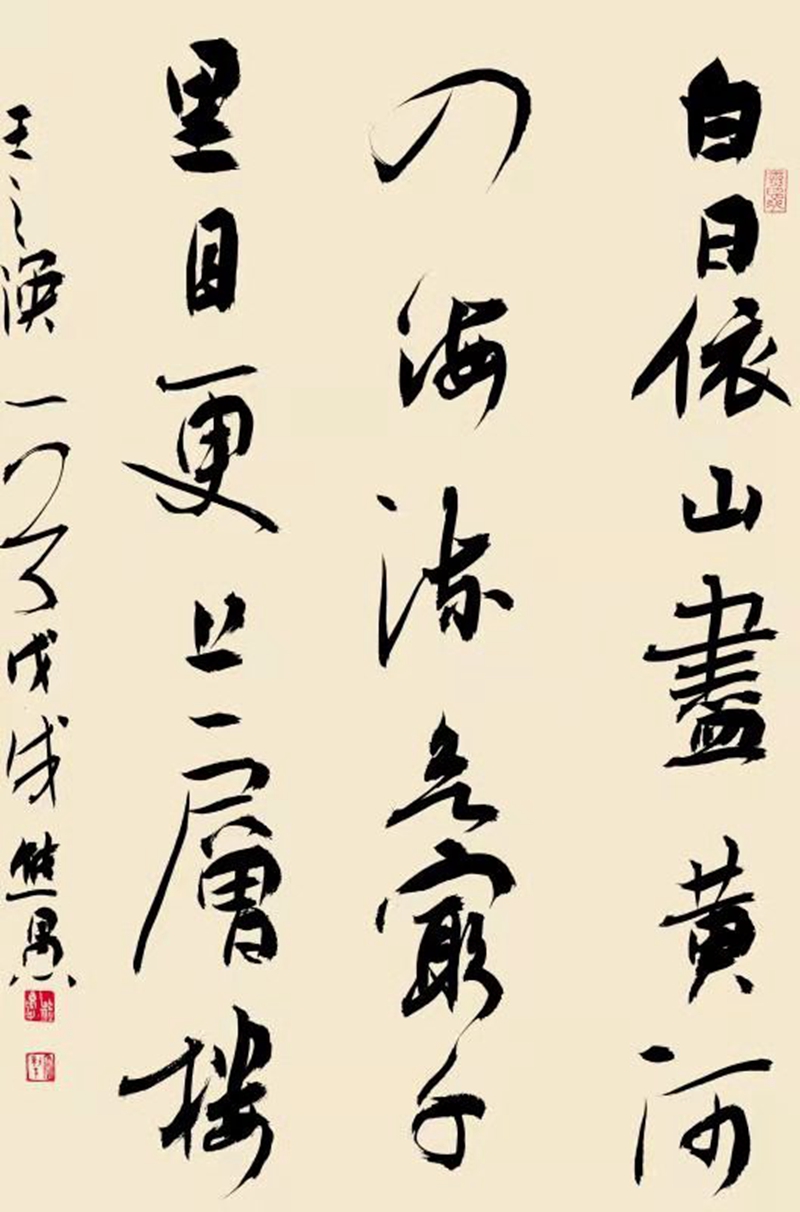 白日依山盡黄河
入海流欲窮千
里目更上一層樓
王之涣一戊戌熊